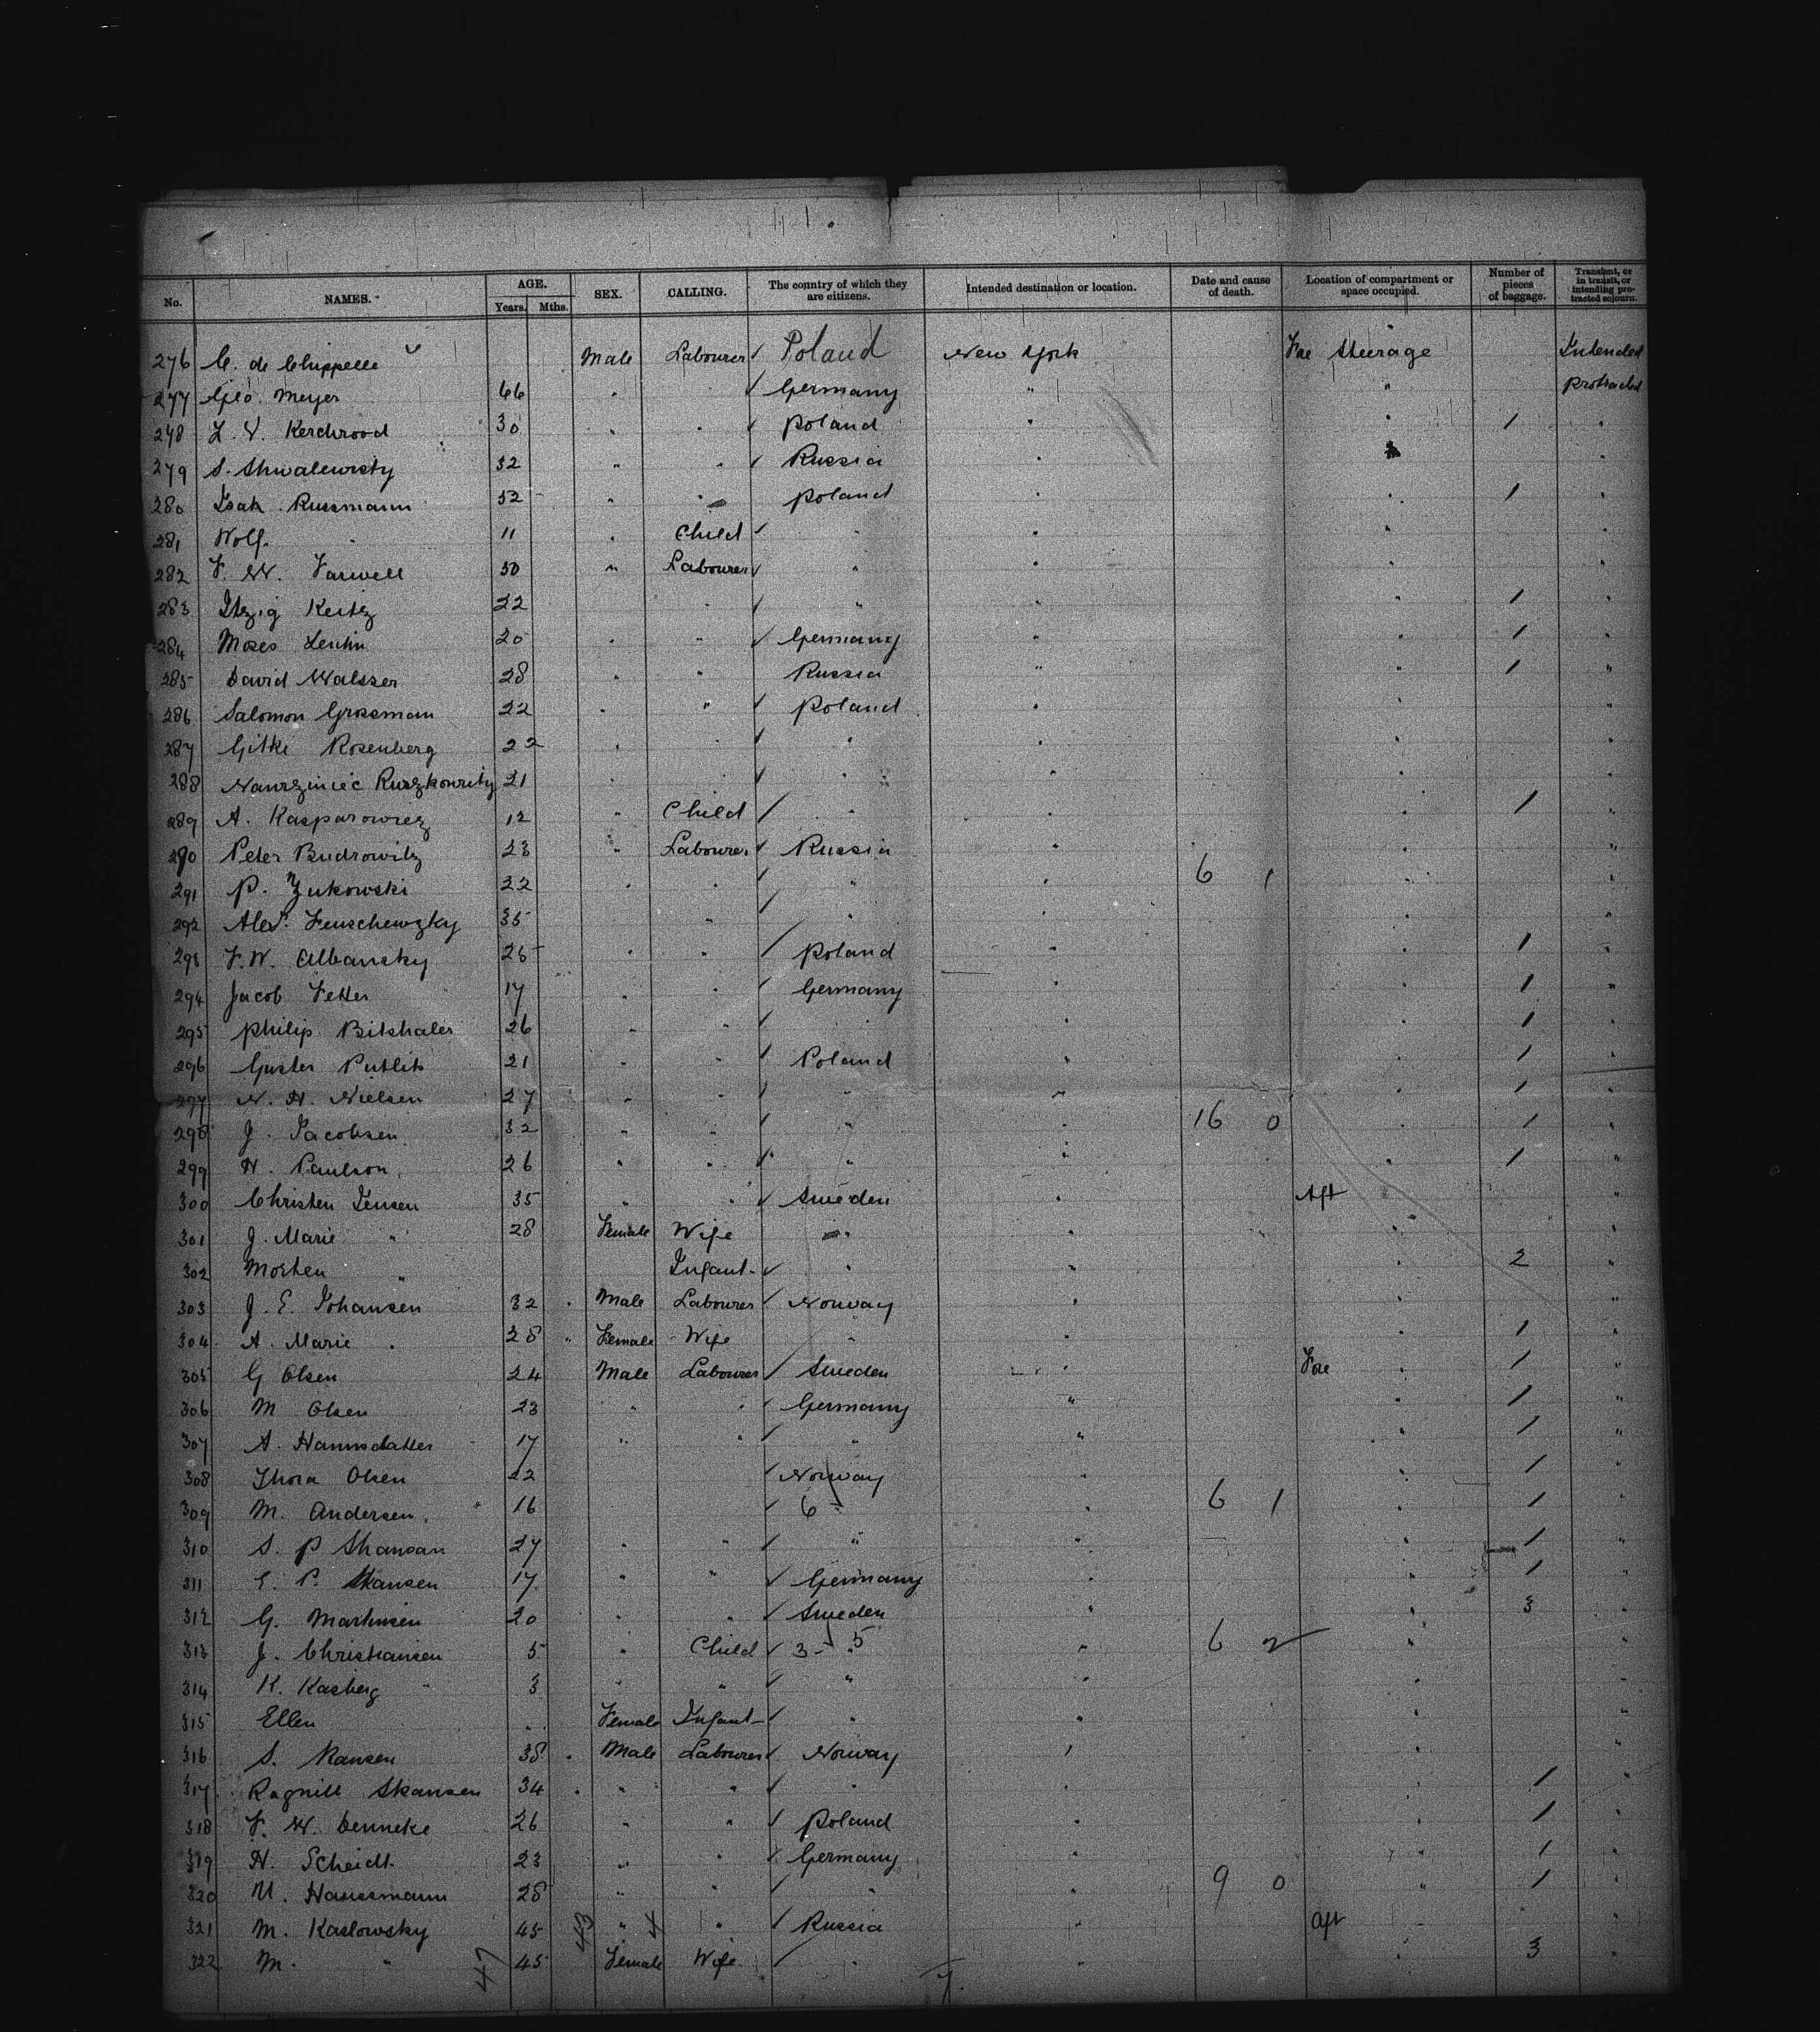 No. NAMES. AGE. Years. Mths. SEX. CALLING. The country of which they are citizens. Intended destination or location. Date and cause of death. Location of compartment or space occupied. Number of pieces of baggage. Transient, or in transit, or intending protracted sojourn.
276 C. de Chippelle Male Labourer Poland New York Fore Steerage Intended
277 Geo. Meyer 46 " " Germany " " Protracted
278 30 " " Poland " " 1 "
279 32 " " Russia " "
280 Isak Russmann 52 " " Poland " " 1 "
281 Wolf " 11 " Child " " " "
282 F. W. Farwell 50 " Labourer " " " "
283 Itzig 22 " " " " 1 "
284 Moses 20 " " Germany " " 1 "
285 David Walsser 28 " " Russia " " 1 "
286 Salomon Grossman 22 " " Poland " " "
287 Gitke Rosenberg 22 " " " " " "
288 21 " " " " " "
289 A. Kasparowicz 12 " Child " " " 1 "
290 Peter Budrowitz 23 " Labourer Russia " " "
291 P. Zukowski 22 " " " " 6 1 " "
292 Alex. 35 " " " " "
293 F. W. Albansky 25 " " Poland " " 1 "
294 Jacob Fetter 17 " " Germany " " 1 "
295 Philip Bitshaler 26 " " " " " 1 "
296 21 " " Poland " " 1 "
297 N. H. Nielsen 27 " " " " " 1 "
298 J. Jacobsen 32 " " " " 16 0 " 1 "
299 H. Paulson 26 " " " " " 1 "
300 Christen Jensen 35 " " Sweden " Aft "
301 J. Marie " 28 Female Wife " " " "
302 Morten " Infant " " 2 "
303 J. E. Johansen 32 Male Labourer Norway " "
304 A. Marie " 28 Female Wife " " " 1 "
305 G Olsen 24 Male Labourer Sweden " Fore " 1 "
306 M Olsen 23 " " Germany " " 1 "
307 A. 17 " " " " " 1 "
308 Thora Olsen 22 Norway " " 1 "
309 M. Andersen 16 6 " " 6 1 " 1 "
310 S. P 27 " " " " " 1 "
311 17 " " Germany " " 1 "
312 G. Martinsen 20 " " Sweden " " 3 "
313 J. Christiansen 5 " Child 3 - " 5 " 6 2 " "
314 K. Kasberg " 3 " " " " " "
315 Ellen " Female Infant " " " "
316 S. 38 Male Labourer Norway " " "
317 Ragnill Skansen 34 " " " " " 1 "
318 F. W. Denneke 26 " " Poland " " 1 "
319 H. Scheidt 23 " " Germany " " 1 "
320 Haussmann 28 " " " " 9 0 " 1 "
321 M. Kaslowsky 45 " " Russia " Aft "
322 M. " 45 Female Wife " " " 3 "
47 43 4